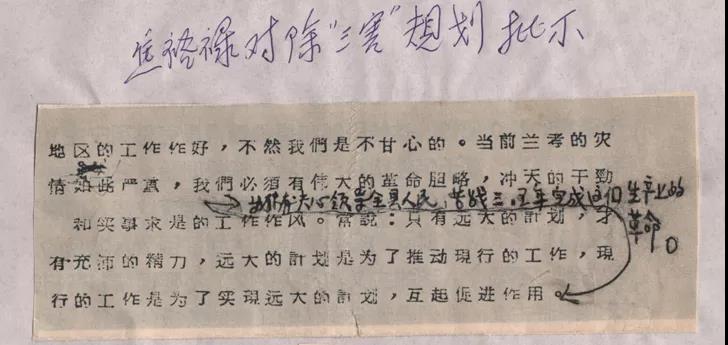 焦裕禄对除“三害”规划批示
地区的工作作好，不然我們是不甘心的。当前兰考的灾
情如此严重，我們必須有偉大的革命胆略，冲天的干勁
抱定决心領导全县人民，苦战三、五年完成这个生产上的革命。
和实事求是的工作作风。常說：只有远大的計划，才
有充沛的精力，远大的計划是为了推动現行的工作，現
行的工作是为了实現远大的計划，互起促进作用。